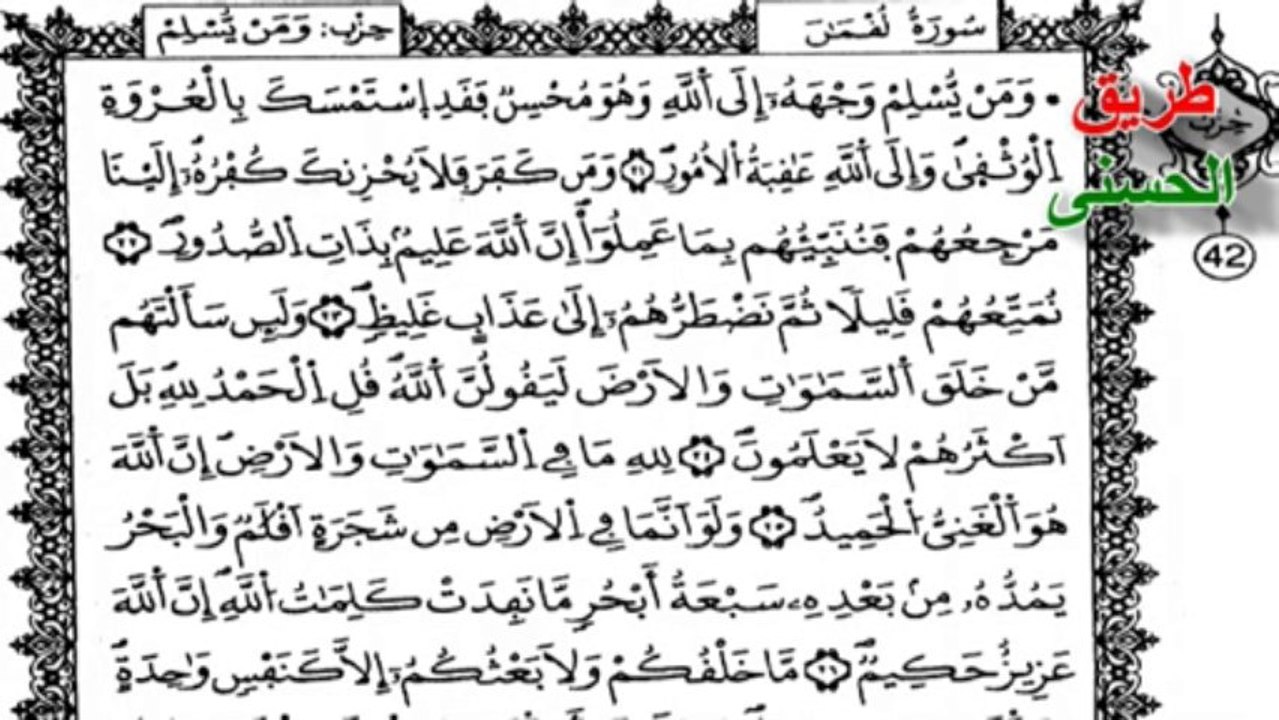 سُورَةُ لُقْمَٰنَ
حِزْب: وَمَنْ يُّسْلِمْ
طريق
الحسنى
حزب
42
• وَمَنْ يُّسْلِمْ وَجْهَهُۥٓ إِلَى اَ۬للَّهِ وَهُوَ مُحْسِنٞ فَقَدِ اِ۪سْتَمْسَكَ بِالْعُرْوَةِ
اِ۬لْوُثْق۪ىٰۖ وَإِلَى اَ۬للَّهِ عَٰقِبَةُ اُ۬لُامُورِۖ ٢١ وَمَن كَفَرَ فَلَا يُحْزِنكَ كُفْرُهُۥٓۖ إِلَيْنَا
مَرْجِعُهُمْ فَنُنَبِّئُهُم بِمَا عَمِلُوٓاْۖ إِنَّ اَ۬للَّهَ عَلِيمُۢ بِذَاتِ اِ۬لصُّدُورِۖ ٢٢
نُمَتِّعُهُمْ قَلِيلاٗ ثُمَّ نَضْطَرُّهُمُۥٓ إِلَىٰ عَذَابٍ غَلِيظٖۖ ٢٣ وَلَئِن سَأَلْتَهُم
مَّنْ خَلَقَ اَ۬لسَّمَٰوَٰتِ وَالَارْضَ لَيَقُولُنَّ اَ۬للَّهُۖ قُلِ اِ۬لْحَمْدُ لِلهِۖ بَلَ
اَكْثَرُهُمْ لَا يَعْلَمُونَۖ ٢٤ لِلهِ مَا فِے اِ۬لسَّمَٰوَٰتِ وَالَارْضِۖ إِنَّ اَ۬للَّهَ
هُوَ اَ۬لْغَنِىُّ اُ۬لْحَمِيدُۖ ٢٥ وَلَوَ اَنَّمَا فِے اِ۬لَارْضِ مِن شَجَرَةٍ اَقْلَٰمٞ وَالْبَحْرُ
يَمُدُّهُۥ مِنۢ بَعْدِهِۦ سَبْعَةُ أَبْحُرٖ مَّا نَفِدَتْ كَلِمَٰتُ اُ۬للَّهِۖ إِنَّ اَ۬للَّهَ
عَزِيزٌ حَكِيمٞۖ ٢٦ مَّا خَلْقُكُمْ وَلَا بَعْثُكُمُۥٓ إِلَّا كَنَفْسٖ وَٰحِدَةٍۖ